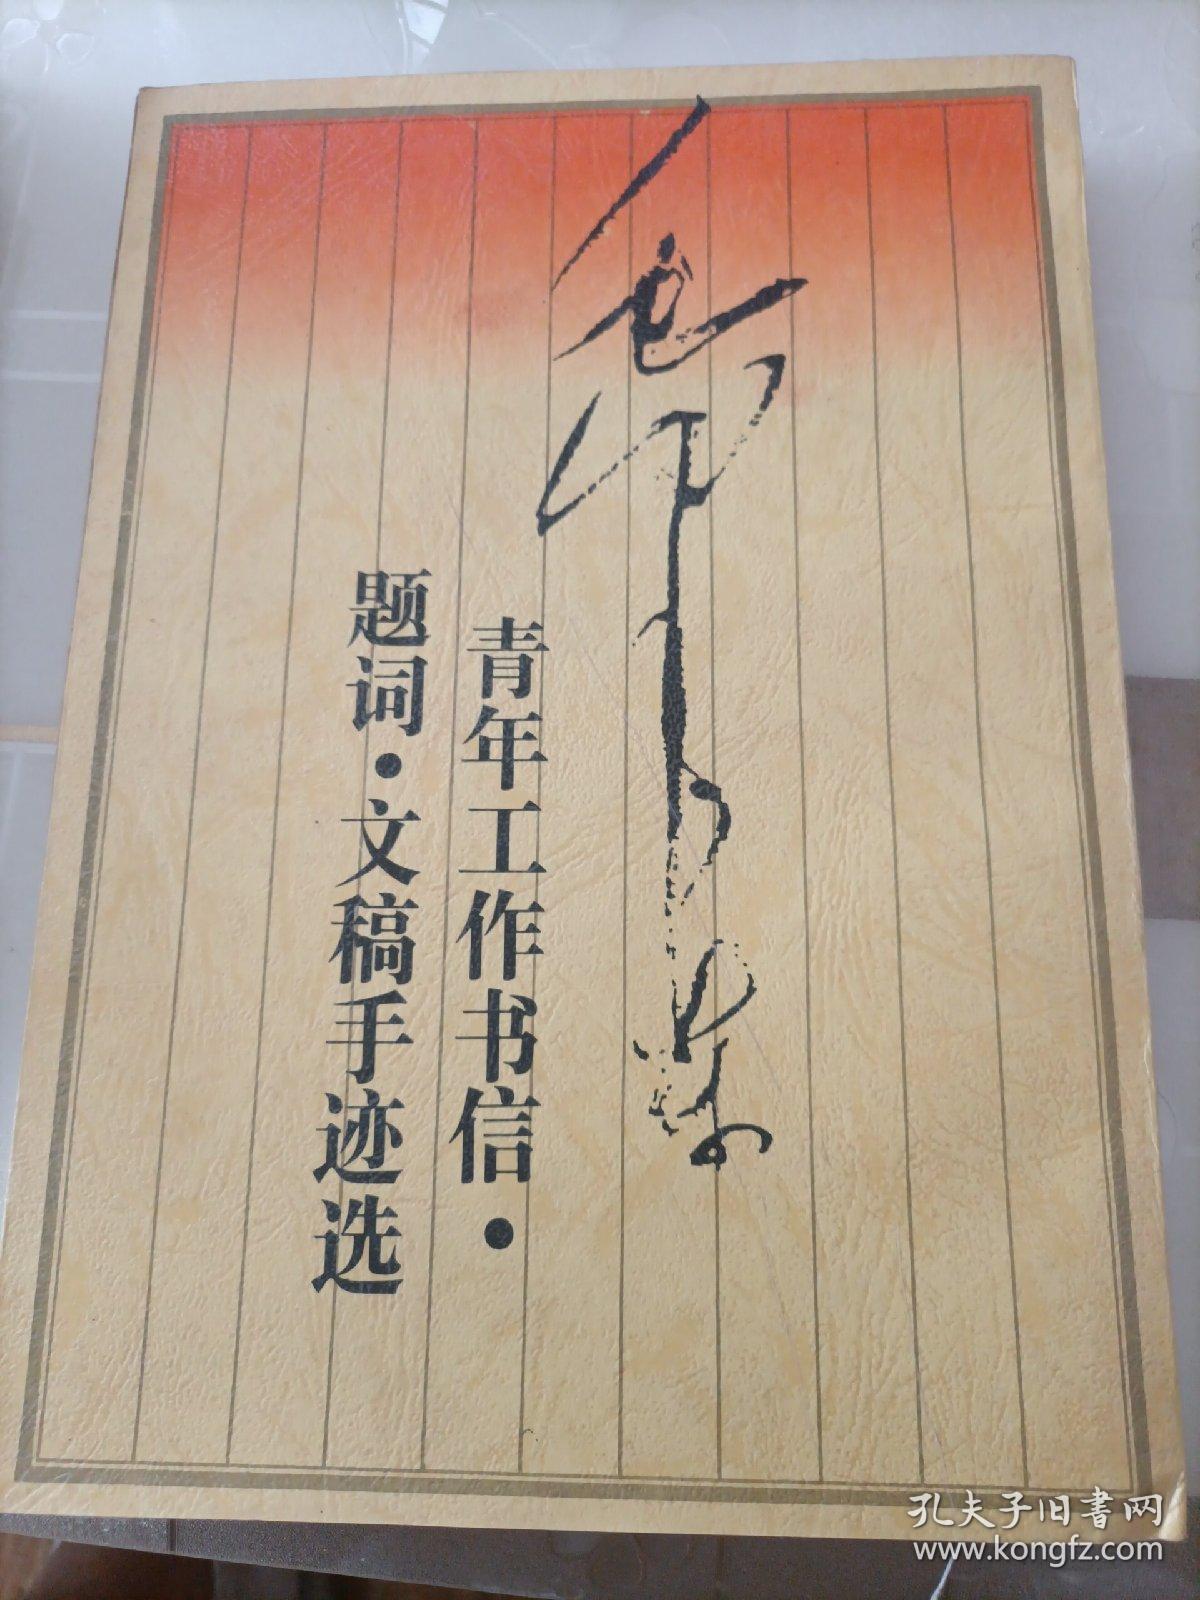 青年工作书信·
题词·文稿手迹选
孔夫子旧書网
www.kongfz.com